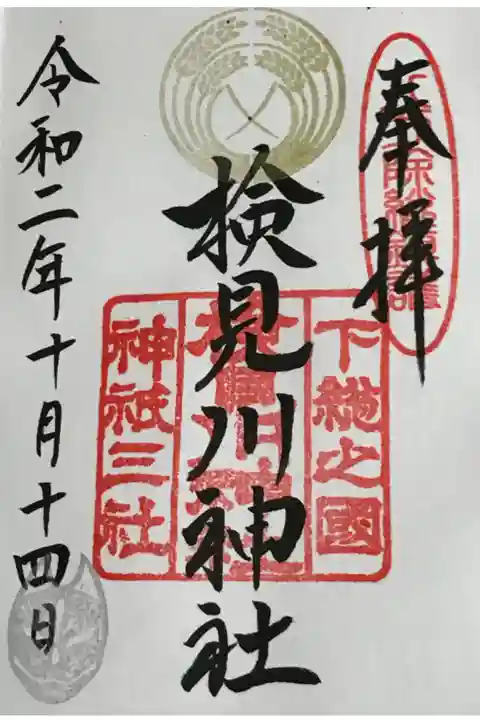 奉拝
下總之國
検見川神社
神祇三社
令和二年十月十四日